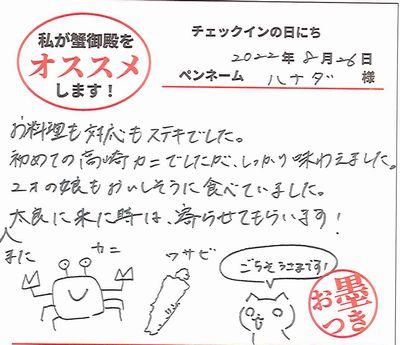 私が蟹御殿を
オススメ
します！
チェックインの日にち
2022年8月26日
ペンネーム ハナダ 様
お料理も対応もステキでした。
初めての高崎カニでしたが、しっかり味わえました。
2才の娘もおいしそうに食べていました。
太良に来た時は、寄らせてもらいます！
また
カニ
ワサビ
ごちそうさまです！
お墨つき